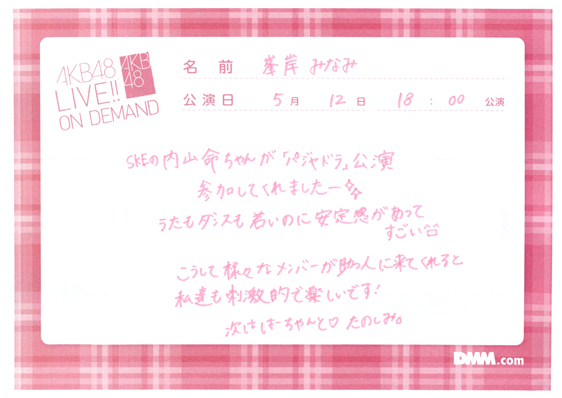 AKB48
LIVE!!
ON DEMAND
AKB
48
名前 峯岸みなみ
公演日 5月 12日 18:00 公演
SKEの内山命ちゃんが「パジャドラ」公演
参加してくれましたー
うたもダンスも若いのに安定感があって
すごい
こうして様々なメンバーが助っ人に来てくれると
私達も刺激的で楽しいです!
次ははーちゃんと♡たのしみ。
DMM.com